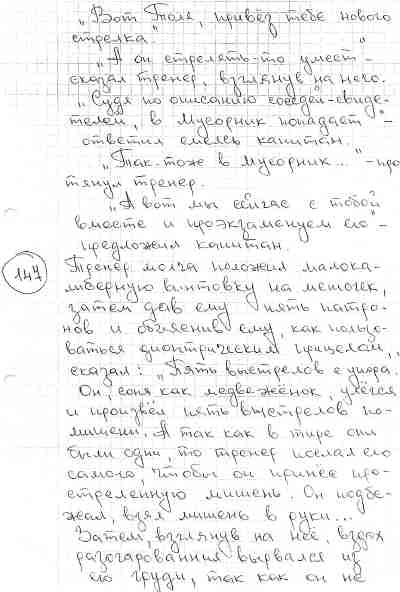 „Вот Толя, привёз тебе нового
стрелка."
„А он стрелять-то умеет" -
сказал тренер, взглянув на него.
„Судя по описанию соседей-свиде-
телей, в мусорник попадает" -
ответил смеясь капитан.
„Так-то же в мусорник..." - про
тянул тренер.
„А вот мы сейчас с тобой
вместе и проэкзаменуем его" -
предложил капитан.
147
Тренер молча положил малока-
либерную винтовку на мешочек,
затем дав ему пять патро-
нов и объяснив ему, как пользо-
ваться диоптрическим прицелом,
сказал: „Пять выстрелов с упора.
Он, сопя как медвежёнок, улёгся
и произвёл пять выстрелов по
мишени. А так как в тире они
были одни, то тренер послал его
самого, чтобы он принёс про-
стреленную мишень. Он подбе-
жал, взял мишень в руки...
Затем, взглянув на неё, вздох
разочарования вырвался из
его груди, так как он не